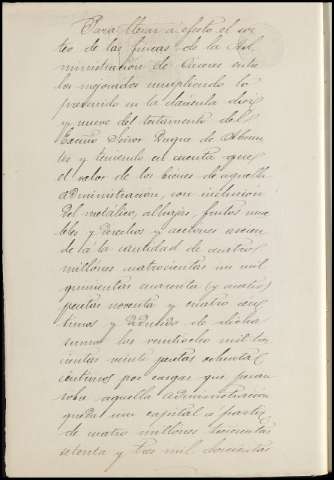 Para llevar a efecto el sor-
teo de las fincas de la Ad-
ministración de Cáceres entre
los mejorados cumpliendo lo
prevenido en la cláusula diez
y nueve del testamento del
Excmo Señor Duque de Abran-
tes y teniendo en cuenta que
el valor de los bienes de aquella
administración, con inclusión
del metálico, alhajas, frutos mue-
bles y derechos y acciones ascien-
de a la cantidad de cuatro
millones cuatrocientas un mil
quinientas cuarenta (y cuatro)
pesetas noventa y cuatro cen-
timos y deducidos de dicha
suma las veintiocho mil tres-
cientas veinte pesetas ochenta
centimos por cargas que pesan
sobre aquella administración
queda un capital a partir
de cuatro millones trescientas
setenta y tres mil doscientas